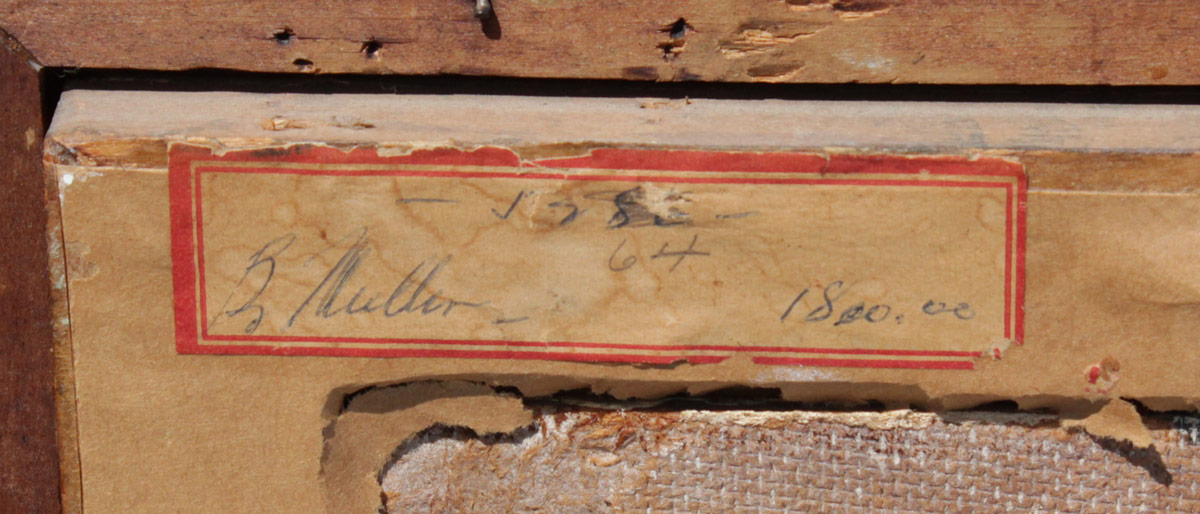 64
B Muller - 1800.00